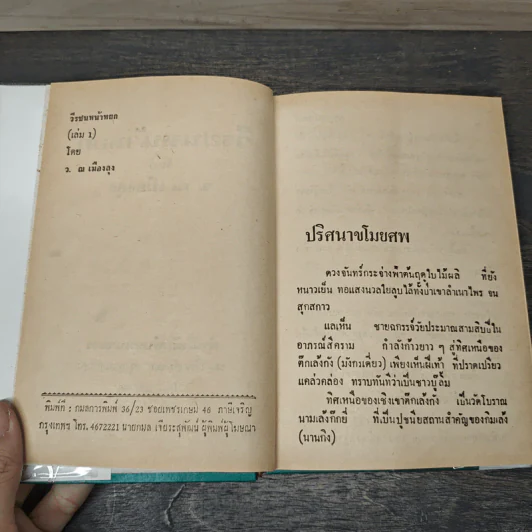 วีรชนหน้าหยก
(เล่ม 1)
โดย
ว. ณ เมืองลุง
พิมพ์ที่ : กมลการพิมพ์ 36/23 ซอยเพชรเกษม 46 ภาษีเจริญ
กรุงเทพ โทร. 4672221 นายกมล เจียระสุพัฒน์ ผู้พิมพ์ผู้โฆษณา
ปริศนาขโมยศพ
ดวงจันทร์กระจ่างฟ้าต้นฤดูใบไม้ผลิ ที่ยัง
หนาวเย็น ทอแสงนวลใยลูบไล้ทั้งป่าเขาลำเนาไพร จน
สุกสกาว
แลเห็น ชายฉกรรจ์วัยประมาณสามสิบปีใน
อาภรณ์สีคราม กำลังก้าวยาว ๆ สู่ทิศเหนือของ
ตึกเล้งกัง (มังกรเดี่ยว) เพียงเห็นฝีเท้า ที่ปราดเปรียว
แคล่วคล่อง ทราบทันทีว่าเป็นชาวบู๊ลิ้ม
ทิศเหนือของเชิงเขาตึกเล้งกัง เป็นวัดโบราณ
นามเล้งก๊กยี่ ที่เป็นปูชนียสถานสำคัญของกิมเล้ง
(นานกิง)